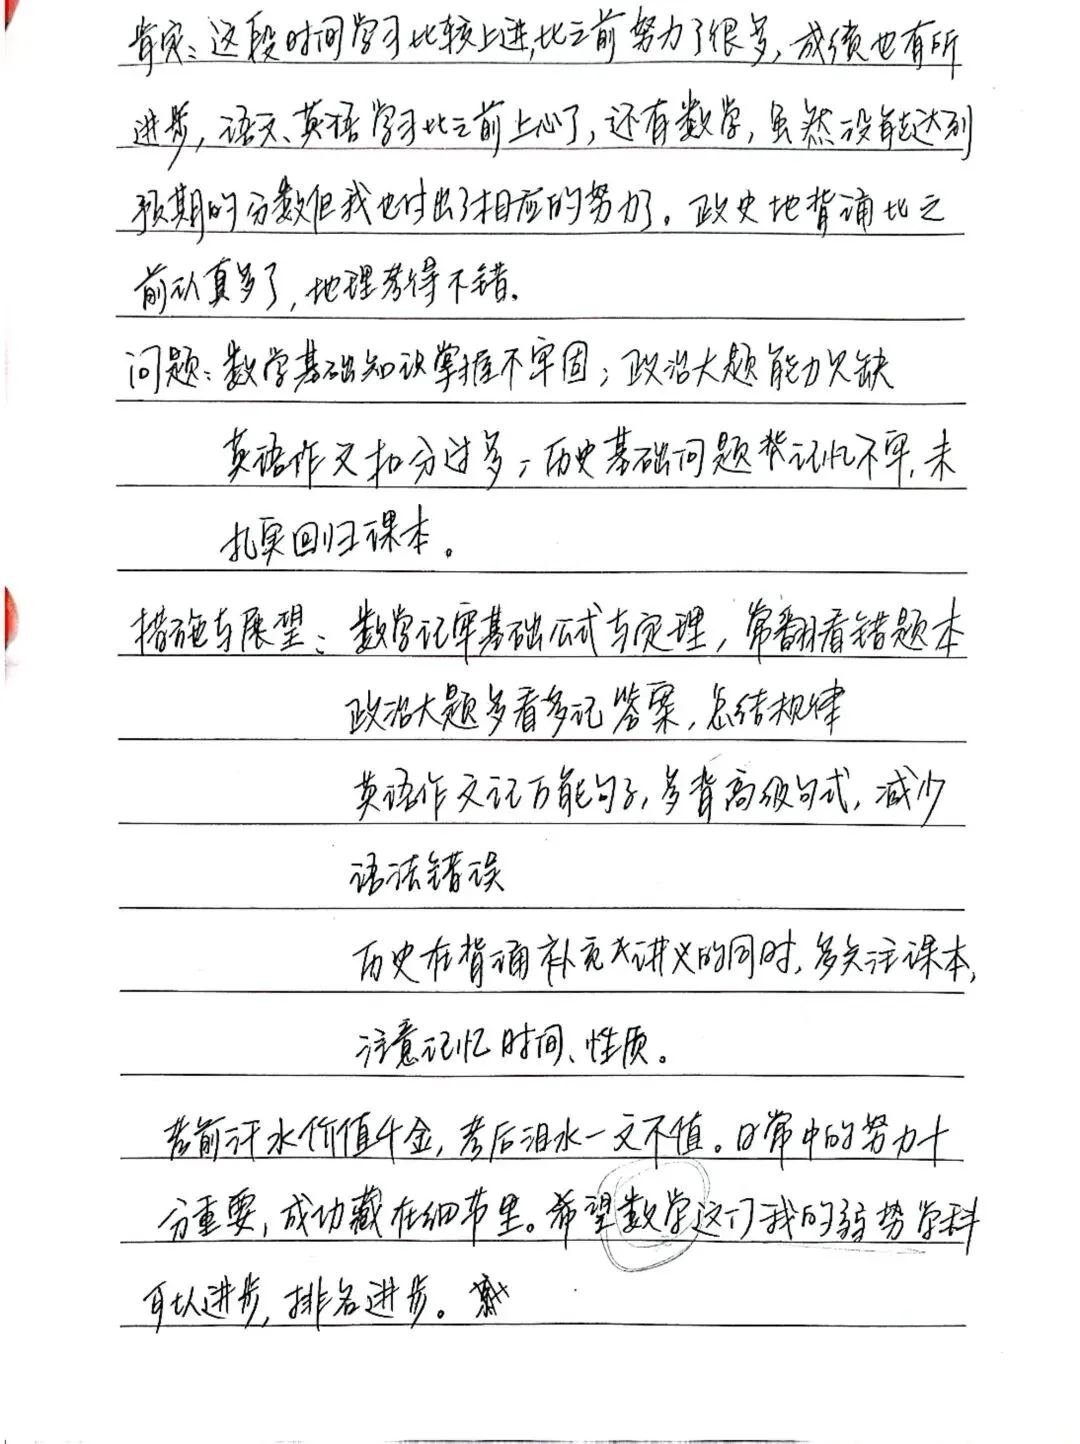 肯定：这段时间学习比较上进，比之前努力了很多，成绩也有所
进步，语文、英语学习比之前上心了，还有数学，虽然没能达到
预期的分数但我也付出了相应的努力了。政史地背诵比之
前认真多了，地理考得不错.
问题：数学基础知识掌握不牢固；政治大题能力欠缺
英语作文扣分过多；历史基础问题背记忆不牢，未
扎实回归课本。
措施与展望：数学记牢基础公式与定理，常翻看错题本
政治大题多看多记答案，总结规律
英语作文记万能句子，多背高级句式，减少
语法错误
历史在背诵补充讲义的同时，多关注课本，
注意记忆时间、性质。
考前汗水价值千金，考后泪水一文不值。日常中的努力十
分重要，成功藏在细节里。希望数学这门我的弱势学科
可以进步，排名进步。